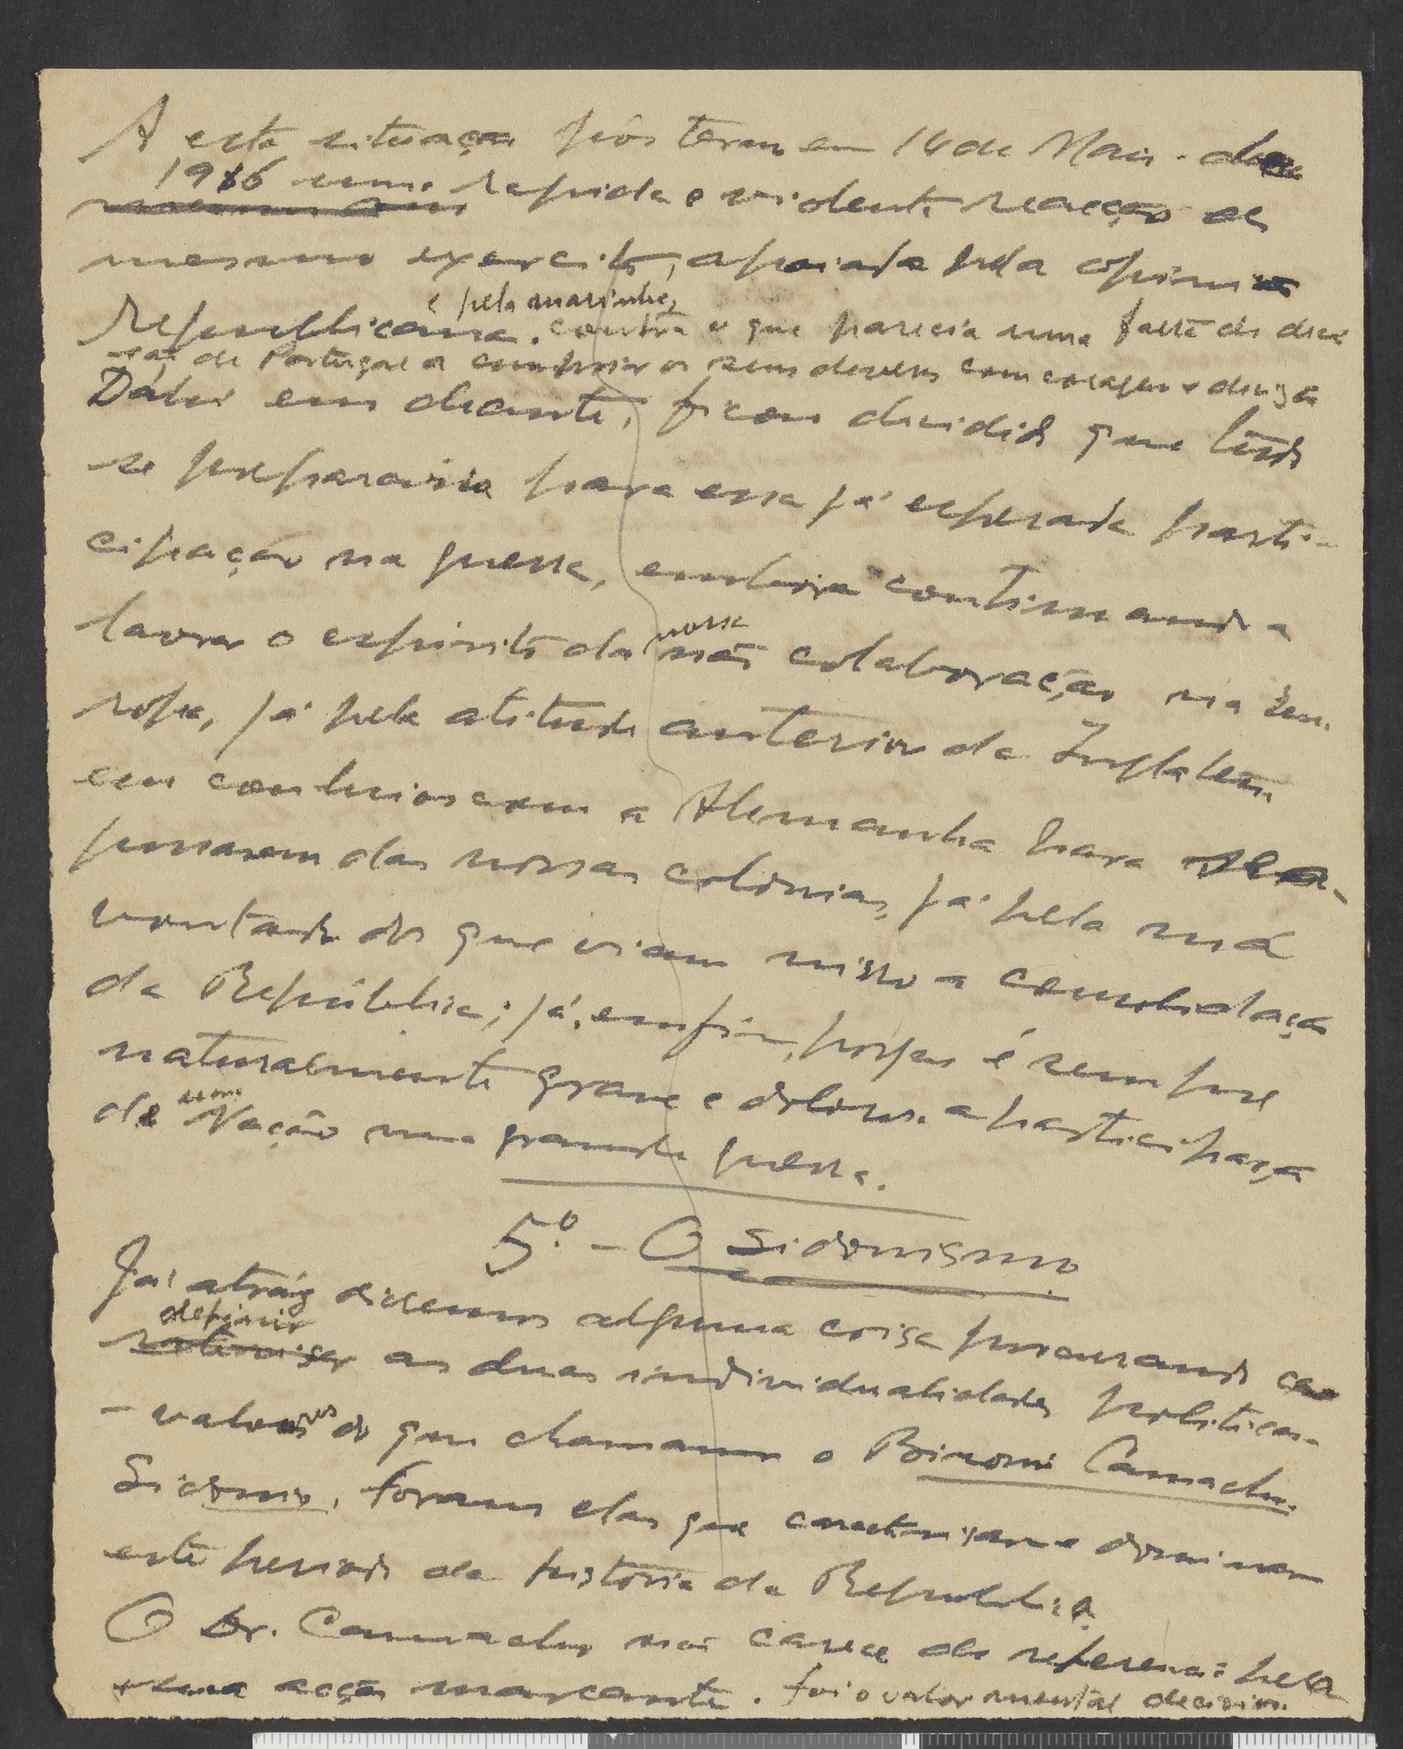 A esta situação pôs termo em 14 de Maio de
1916 uma rapida e violenta reacção do
mesmo exercito, apoiada pela opinião
Republicana e pela marinha, contra o que parecia uma falta de deci
são de Portugal a cumprir os seus deveres com coragem e decisão
Daí em diante, ficou decidido que tudo
se prepararia para essa já esperada parti-
cipação na guerra, embora continuando a
lavrar o espirito da nossa não colaboração na Eu-
ropa, já pela atitude anterior da Inglaterra
em conluios com a Alemanha para se a-
possarem das nossas colonias, já pela má
vontade dos que viam nisso a consolidação
da República; já, enfim, porque é sempre
naturalmente grave e dolorosa a participação
de uma Nação numa grande guerra.
5.º - O Sidonismo
Já atrás dissemos alguma coisa procurando
definir as duas individualidades politicas
- valores do que chamamos o Binomio Camacho-
Sidonio. Foram elas que caracterisaram e dominaram
este periodo da historia da Republica.
O Dr. Camacho não carece de referencia pela
sua acção marcante. Foi o valor mental decisivo.